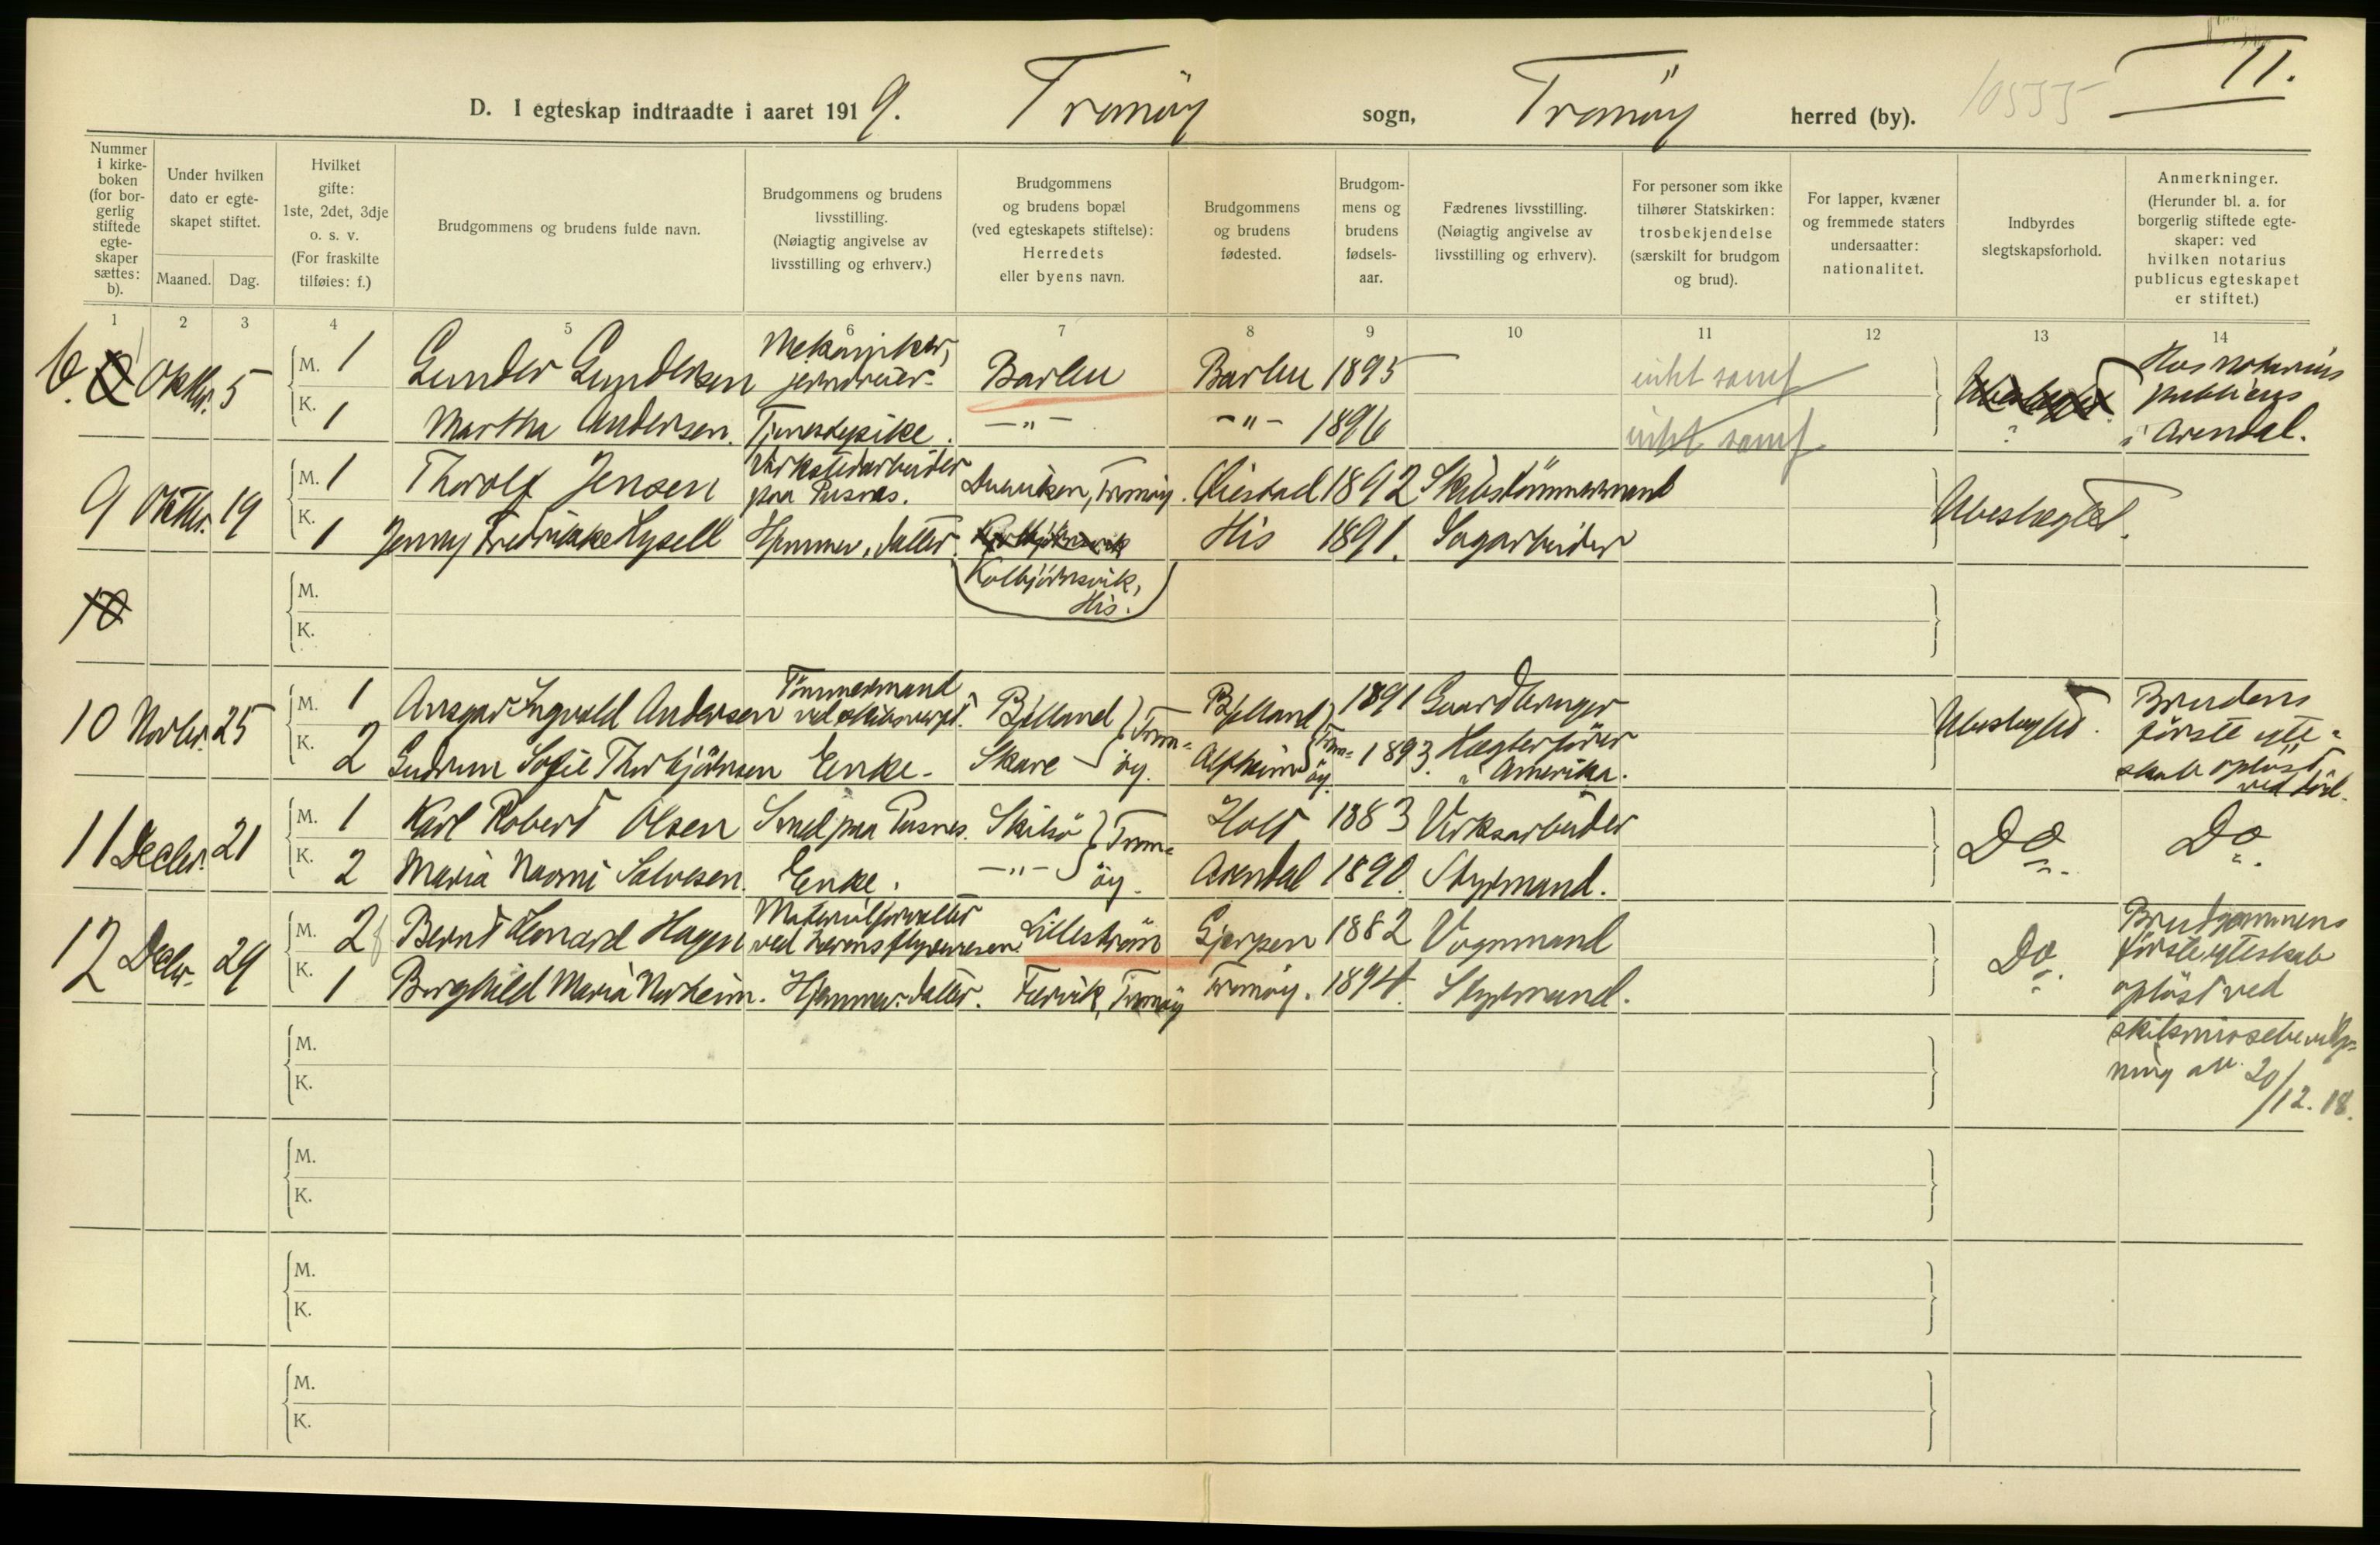 II.
D. I egteskap indtraadte i aaret 1919. Tromöy sogn, Tromöy herred (by). 10555
Nummer i kirke-boken (for bor-gerlig stiftede egte-skaper sættes: b).
Under hvilken dato er egte-skapet stiftet.
Maaned. Dag.
Hvilket gifte: 1ste, 2det, 3dje o. s. v. (For fraskilte tilføies: f.)
Brudgommens og brudens fulde navn.
Brudgommens og brudens livsstilling. (Nøiagtig angivelse av livsstilling og erhverv.)
Brudgommens og brudens bopæl (ved egteskapets stiftelse): Herredets eller byens navn.
Brudgommens og brudens fødested.
Brudgom-mens og brudens fødsels-aar.
Fædrenes livsstilling. (Nøiagtig angivelse av livsstilling og erhverv).
For personer som ikke tilhører Statskirken: trosbekjendelse (særskilt for brudgom og brud).
For lapper, kvæner og fremmede staters undersaatter: nationalitet.
Indbyrdes slegtskapsforhold.
Anmerkninger. (Herunder bl. a. for borgerlig stiftede egte-skaper: ved hvilken notarius publicus egteskapet er stiftet.)
1 2 3 4 5 6 7 8 9 10 11 12 13 14
b. Oktbr. 5 M. 1 Gunder Gundersen Mekaniker, jerndreier. Barbu Barbu 1895 Hos notarius publicus i Arendal.
K. 1 Martha Andersen. Tjenestepike. -"- -"- 1896
9 Oktbr. 19 M. 1 Thorolf Jensen Verkstedarbeider paa Pusnes. Tromöy. Øiestad 1892 Skibstömmermand Ubeslegtet.
K. 1 Jenny Fredrikke Hysell Hjemmev. datter. Kolbjörnsvik, His. His 1891. Sagarbeider
10
M.
K.
10 Novbr. 25 M. 1 Ansgar Ingvald Andersen Tömmermand ved skibsverft. Bjelland Tromöy. Bjelland Tromöy. 1891 Gaardbruger Ubeslegtet. Brudens förste egteskab oplöst ved död.
K. 2 Gudrun Sofie Thorbjörnsen Enke. Skare 1893. i Amerika.
11 Decbr. 21 M. 1 Karl Robert Olsen Smed paa Pusnes. Skilsö Tromöy. Holt 1883 Verksarbeider Do. Do.
K. 2 Maria Naomi Salvesen. Enke. -"- Arendal 1890. Styrmand.
12 Decbr. 29 M. 2 f Bernt Leonard Hagen Materialforvalter ved hærens flyvevesen. Lilleström Gjerpen 1882 Vognmand Do. Brudgommens förste egteskab oplöst ved skilsmissebevilgning av 20/12. 18.
K. 1 Borghild Maria Norheim. Hjemmev. datter. Færvik, Tromöy Tromöy. 1894. Styrmand.
M.
K.
M.
K.
M.
K.
M.
K.